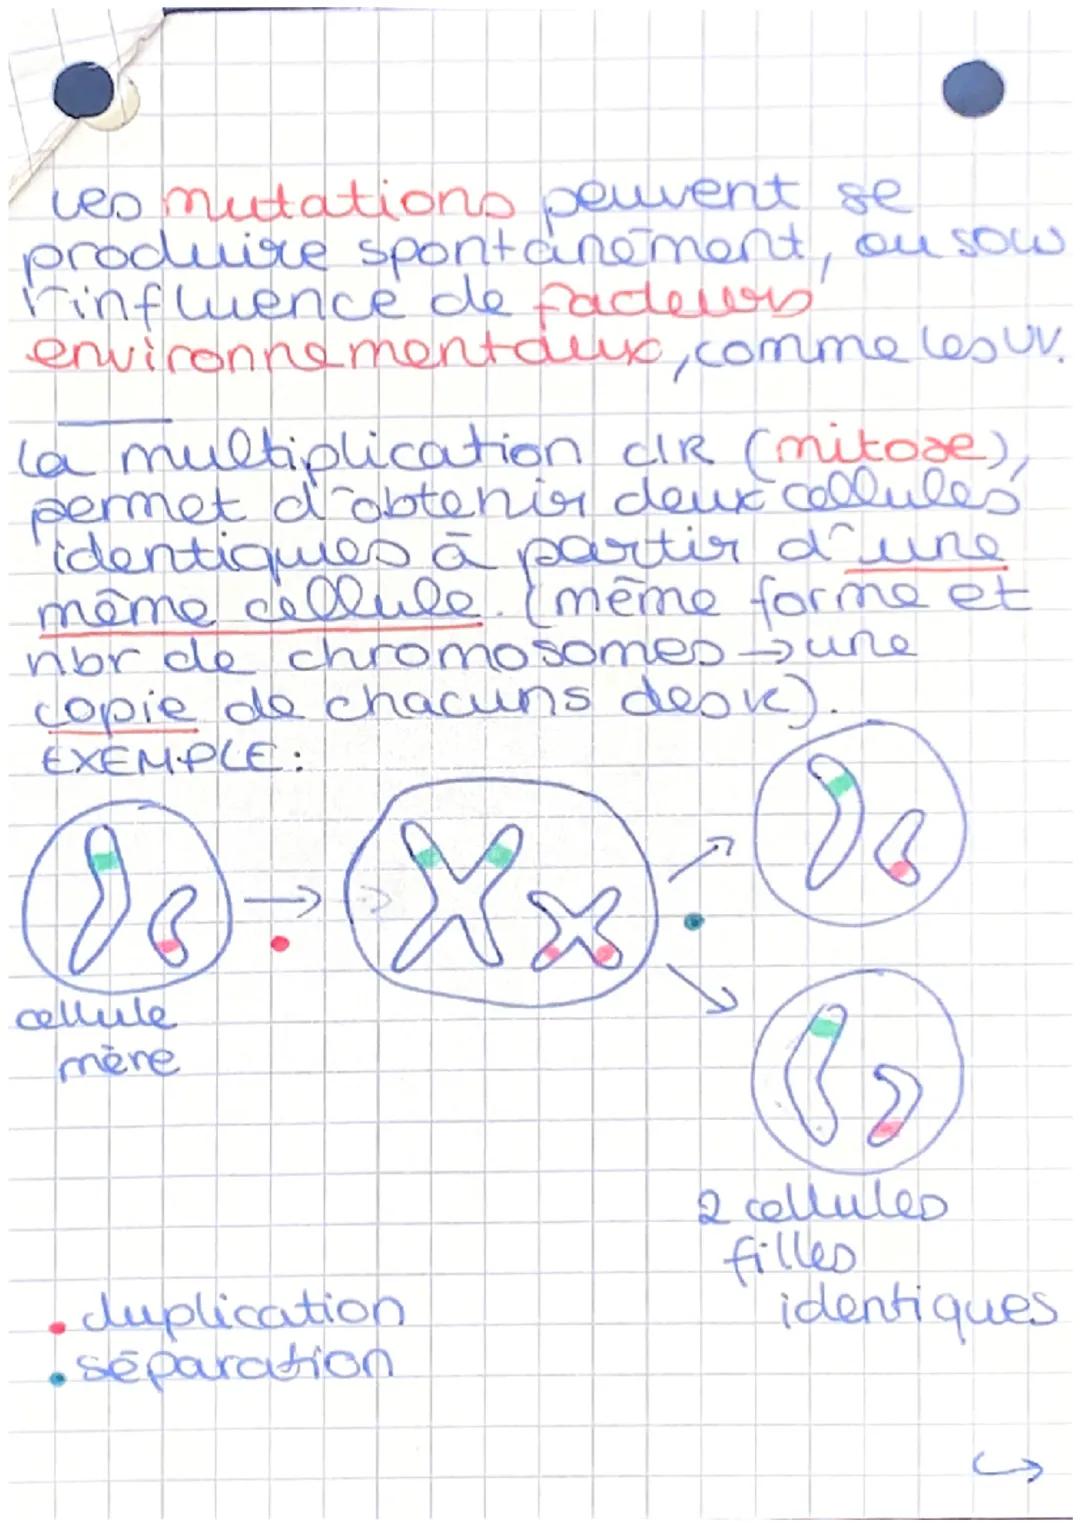 Les mutations peuvent se
produire spontanément, ou sous
l'influence de facteurs
environnementaux, comme les UV.
La multiplication clR (mitose),
permet d'obtenir deux cellules
identiques à partir d'une
même cellule. (même forme et
nbr de chromosomes → une
copie de chacuns des K).
EXEMPLE:
cellule
mère
2 cellules
filles
identiques
• duplication
• séparation